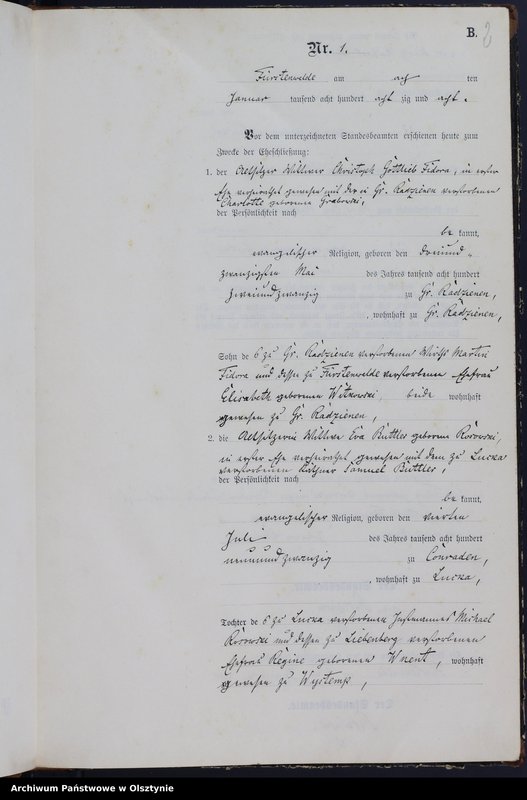 B.
2
Nr. 1.
Fürstenwalde am acht ten
Januar tausend acht hundert acht zig und acht.
Vor dem unterzeichneten Standesbeamten erschienen heute zum
Zwecke der Eheschließung:
1. der Altsitzer Wittwer Christoph Gottlieb Fidora, in erster
Ehe verheirathet gewesen mit der in Gr. Radzienen verstorbenen
Charlotte geborenen Grabowski,
der Persönlichkeit nach
be kannt,
evangelischer Religion, geboren den dreiund-
zwanzigsten Mai des Jahres tausend acht hundert
zweiundzwanzig zu Gr. Radzienen,
, wohnhaft zu Gr. Radzienen,
Sohn des zu Gr. Radzienen verstorbenen Wirths Martin
Fidora und dessen zu Fürstenwalde verstorbenen Ehefrau
Elisabeth geborenen Witkowski, beide wohnhaft
gewesen zu Gr. Radzienen,
2. die Altsitzerin Wittwe Eva Buttler geborene Rosowski,
in erster Ehe verheirathet gewesen mit dem zu Lucka
verstorbenen Käthner Samuel Buttler,
der Persönlichkeit nach
be kannt,
evangelischer Religion, geboren den vierten
Juli des Jahres tausend acht hundert
neunundzwanzig zu Conraden,
, wohnhaft zu Lucka,
Tochter des zu Lucka verstorbenen Instmannes Michael
Rosowski und dessen zu Liebenberg verstorbenen
Ehefrau Regine geborenen Wnent, wohnhaft
gewesen zu Wystemp,
Archiwum Państwowe w Olsztynie